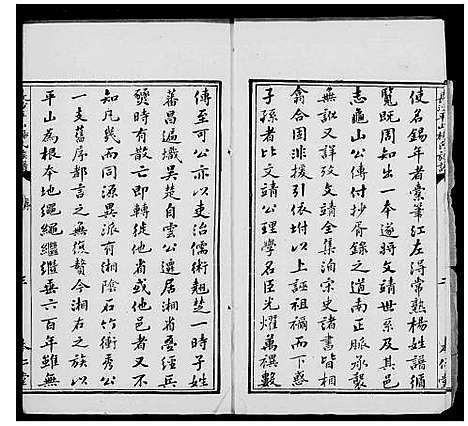 使名錫年者橐筆江左得常熟楊姓譜備
覽既周知出一本遂將文靖世系及其邑
志龜山公傳付抄胥錄之道南正脈承襲
無訛又詳攷文靖全集洎宋史諸書皆相
翕合固非援引依附以我誣祖者而下凡我
子孫者比文靖公理學名臣光耀萬禩數
傳至可公亦以吏治儒術翹楚一時子姓
蕃昌遍熾吳楚自雲公遷居湘省疊經兵
燹時有散亡即轉徙他省或他邑者又不
知凡幾而同源異派有湘陰石竹衝秀公
一支舊序都言之無俟復贅今湘右之族以
平山為根本地繩繩繼繼垂六百年雖無